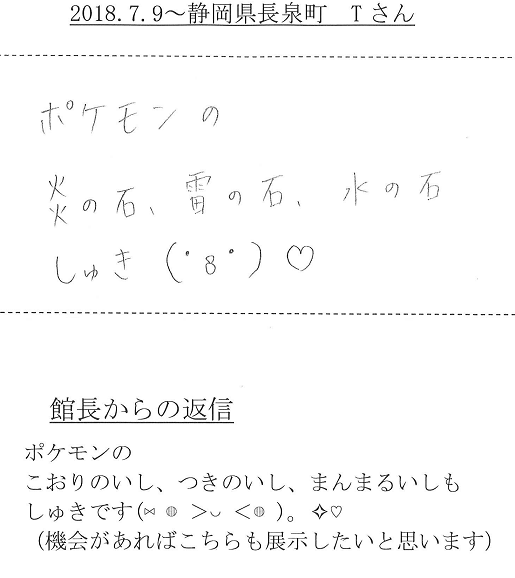 2018.7.9～静岡県長泉町　Tさん
ポケモンの
炎の石、雷の石、水の石
しゅき（°8°）♡
館長からの返信
ポケモンの
こおりのいし、つきのいし、まんまるいしも
しゅきです(⋈ ◍ ＞◡ ＜◍ )。✧♡
（機会があればこちらも展示したいと思います）